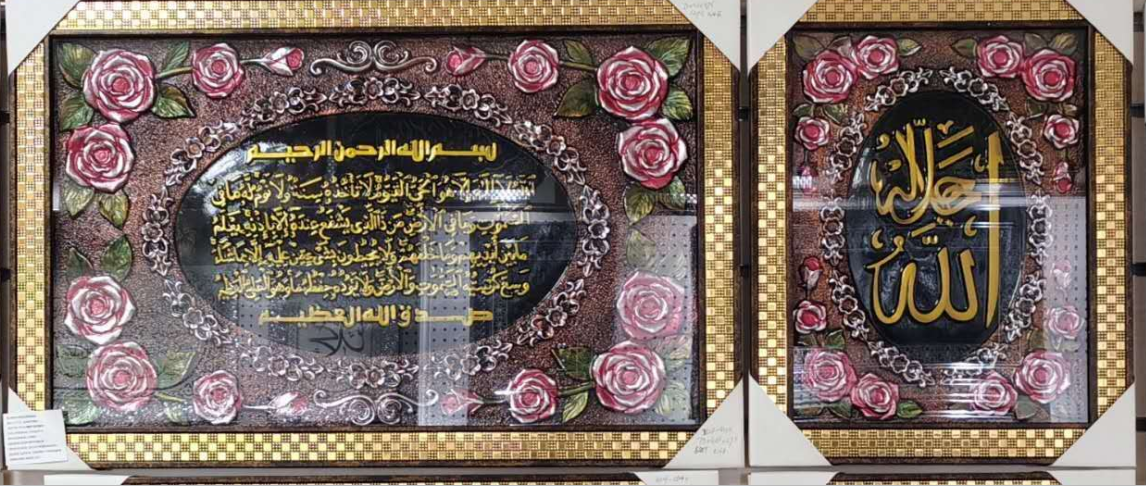 بسم الله الرحمن الرحيم
الله لا إله إلا هو الحي القيوم لا تأخذه سنة ولا نوم له ما في
السموت وما في الأرض من ذا الذي يشفع عنده إلا بإذنه يعلم
ما بين أيديهم وما خلفهم ولا يحيطون بشيء من علمه إلا بما شاء
وسع كرسيه السموت والأرض ولا يؤده حفظهما وهو العلي العظيم
صدق الله العظيم
الله
جل جلاله